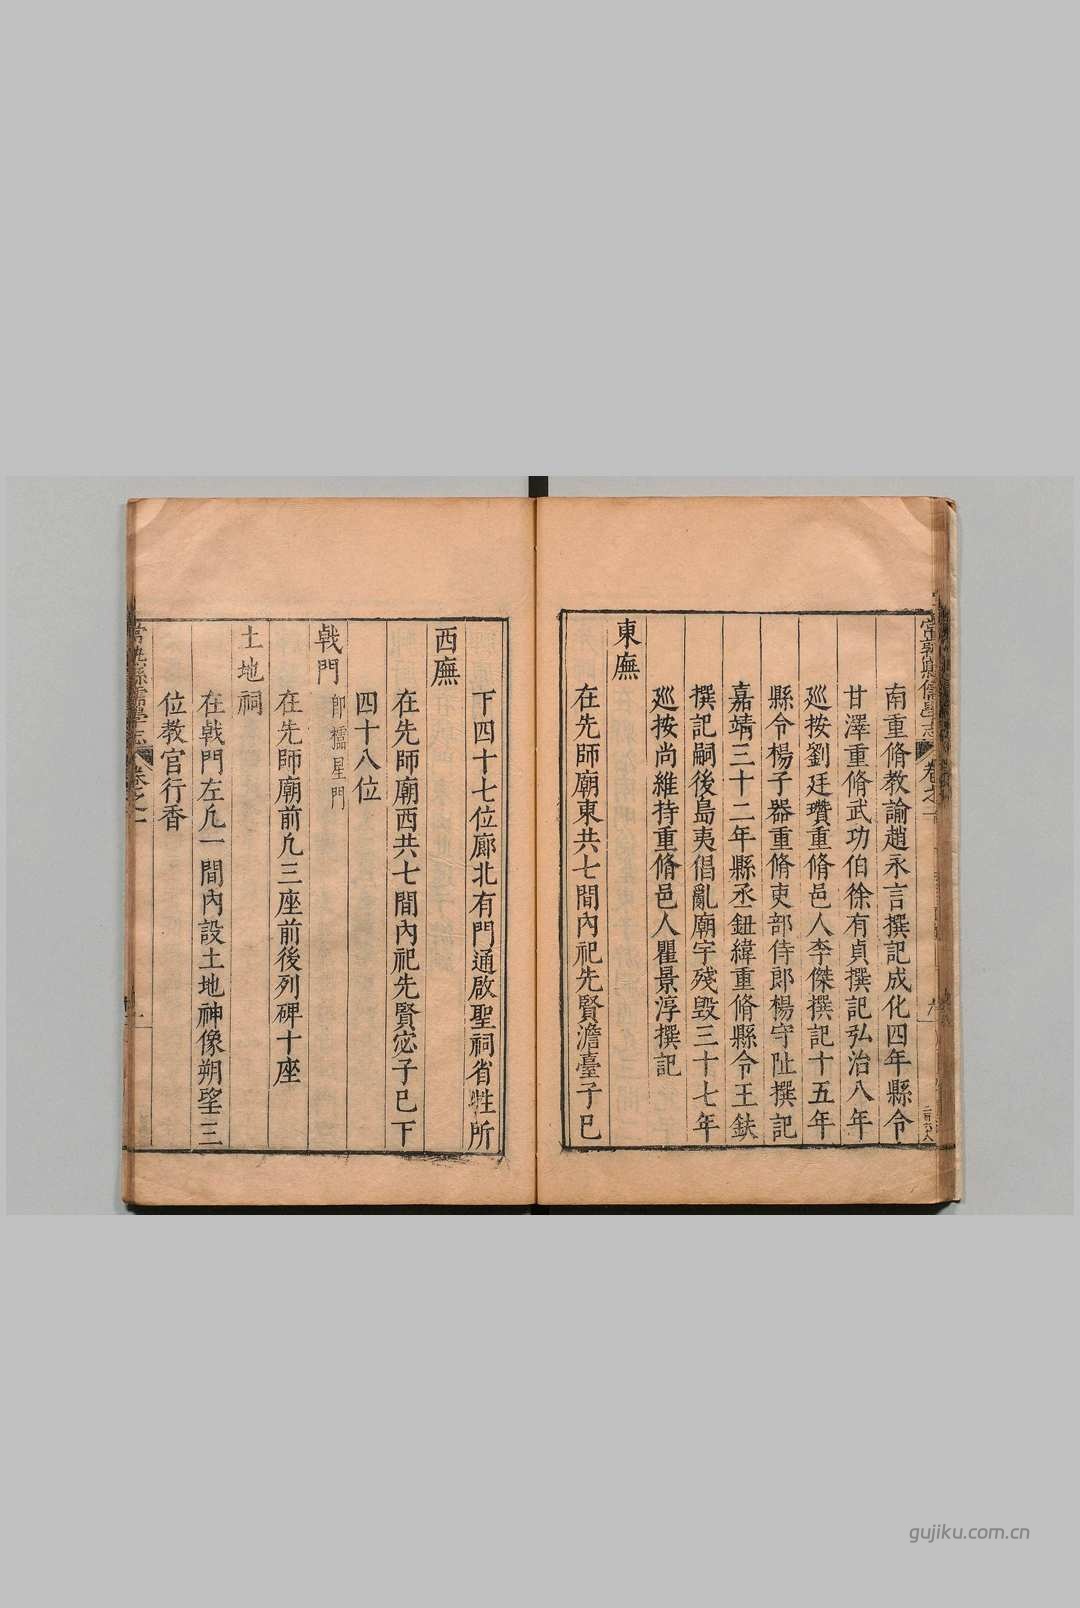 南重脩教諭趙永言撰記成化四年縣令
甘澤重脩武功伯徐有貞撰記弘治八年
廵按劉廷瓚重脩邑人李傑撰記十五年
縣令楊子器重脩吏部侍郎楊守阯撰記
嘉靖三十二年縣丞鈕緯重脩縣令王鈇
撰記嗣後島夷倡亂廟宇殘毀三十七年
廵按尚維持重脩邑人瞿景淳撰記
東廡
在先師廟東共七間內祀先賢澹臺子巳
下四十七位廊北有門通啟聖祠省牲所
西廡
在先師廟西共七間內祀先賢宓子巳下
四十八位
戟門 即櫺星門
在先師廟前凢三座前後列碑十座
土地祠
在戟門左凢一間內設土地神像朔望三
位教官行香
常熟縣儒學志 卷之一
常熟縣儒學志 卷之一
gujiku.com.cn